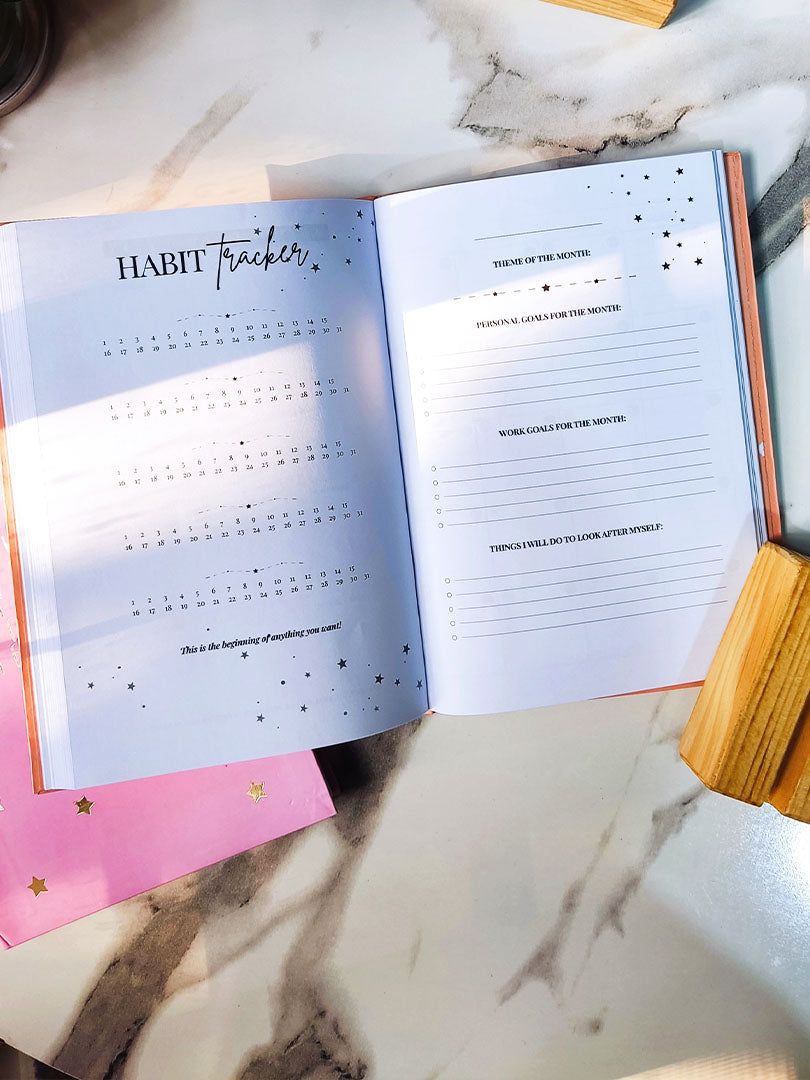 HABIT tracker
1 2 3 4 5 6 7 8 9 10 11 12 13 14 15
16 17 18 19 20 21 22 23 24 25 26 27 28 29 30 31
1 2 3 4 5 6 7 8 9 10 11 12 13 14 15
16 17 18 19 20 21 22 23 24 25 26 27 28 29 30 31
1 2 3 4 5 6 7 8 9 10 11 12 13 14 15
16 17 18 19 20 21 22 23 24 25 26 27 28 29 30 31
1 2 3 4 5 6 7 8 9 10 11 12 13 14 15
16 17 18 19 20 21 22 23 24 25 26 27 28 29 30 31
1 2 3 4 5 6 7 8 9 10 11 12 13 14 15
16 17 18 19 20 21 22 23 24 25 26 27 28 29 30 31
This is the beginning of anything you want!
THEME OF THE MONTH:
PERSONAL GOALS FOR THE MONTH:
WORK GOALS FOR THE MONTH:
THINGS I WILL DO TO LOOK AFTER MYSELF: